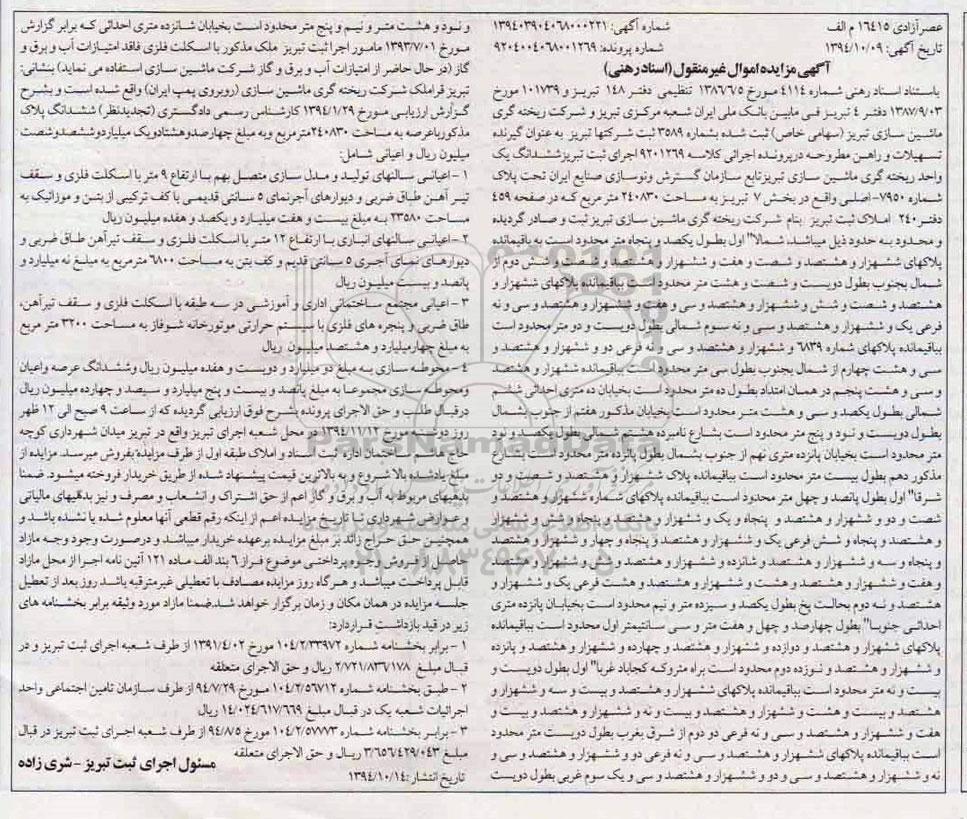 عصر آزادی ۱۶۴۱۵ م الف
شماره آگهی: ۱۳۹۴۰۳۹۰۴۰۶۸۰۰۰۲۲۱
تاریخ آگهی: ۱۳۹۴/۱۰/۰۹
شماره پرونده: ۹۲۰۴۰۰۴۰۶۸۰۰۱۲۶۹
آگهی مزایده اموال غیر منقول (اسناد رهنی)
باستناد اسناد رهنی شماره ۴۱۱۴ مورخ ۱۳۸۶/۶/۵ تنظیمی دفتر ۱۴۸ تبریز و ۱۰۱۷۳۹ مورخ
۱۳۸۷/۹/۰۳ دفتر ۴ تبریز فی مابین بانک ملی ایران شعبه مرکزی تبریز و شرکت ریخته گری
ماشین سازی تبریز (سهامی خاص) ثبت شده بشماره ۳۵۸۹ ثبت شرکتها تبریز به عنوان گیرنده
تسهیلات و راهن مطروحه در پرونده اجرائی کلاسه ۹۲۰۱۲۶۹ اجرای ثبت تبریز ششدانگ یک
واحد ریخته گری ماشین سازی تبریز تابع سازمان گسترش ونوسازی صنایع ایران تحت پلاک
شماره ۷۹۵۰- اصلی واقع در بخش ۷ تبریز به مساحت ۲۴۰۸۳۰ متر مربع که در صفحه ۴۵۹
دفتر ۲۴۰ املاک ثبت تبریز بنام شرکت ریخته گری ماشین سازی تبریز ثبت و صادر گردیده
و محدود به حدود ذیل میباشد: شمالا" اول بطول یکصد و پنجاه متر محدود است به باقیمانده
پلاکهای ششهزار و هشتصد و شصت و هفت و ششهزار و هشتصد و شصت و شش دوم از
شمال بجنوب بطول دویست و شصت و هشت متر محدود است بباقیمانده پلاکهای ششهزار و
هشتصد و شصت و شش و ششهزار و هشتصد و سی و هفت و ششهزار و هشتصد و سی و نه
فرعی یک و ششهزار و هشتصد و سی و نه سوم شمالی بطول دویست و دو متر محدود است
بباقیمانده پلاکهای شماره ۶۸۳۹ و ششهزار و هشتصد و سی و نه فرعی دو و ششهزار و هشتصد و
سی و هشت چهارم از شمال بجنوب بطول سی متر محدود است بباقیمانده ششهزار و هشتصد
و سی و هشت پنجم در همان امتداد بطول ده متر محدود است بخیابان ده متری احداثی ششم
شمالی بطول یکصد و سی و هشت متر محدود است بخیابان مذکور هفتم از جنوب بشمال
بطول دویست و نود و پنج متر محدود است بشارع نامبرده هشتم شمالی بطول یکصد و نود
متر محدود است بخیابان پانزده متری نهم از جنوب بشمال بطول پانزده متر محدود است بشارع
مذکور دهم بطول بیست متر محدود است بباقیمانده پلاک ششهزار و هشتصد و شصت و دو
شرقا" اول بطول پانصد و چهل متر محدود است بباقیمانده پلاکهای شماره ششهزار و هشتصد و
شصت و دو و ششهزار و هشتصد و پنجاه و یک و ششهزار و هشتصد و پنجاه و شش و ششهزار
و هشتصد و پنجاه و شش فرعی یک و ششهزار و هشتصد و پنجاه و چهار و ششهزار و هشتصد
و پنجاه و سه و ششهزار و هشتصد و شانزده و ششهزار و هشتصد و شش و ششهزار و هشتصد
و هفت و ششهزار و هشتصد و هشت و ششهزار و هشتصد و هشت فرعی یک و ششهزار و
هشتصد و نه دوم بحالت پخ بطول یکصد و سیزده متر و نیم محدود است بخیابان پانزده متری
احداثی جنوبا" بطول چهارصد و چهل و هفت متر و سی سانتیمتر اول محدود است بباقیمانده
پلاکهای ششهزار و هشتصد و دوازده و ششهزار و هشتصد و چهارده و ششهزار و هشتصد و پانزده
و ششهزار و هشتصد و نوزده دوم محدود است براه متروکه کجاباد غربا" اول بطول دویست و
بیست و نه متر محدود است بباقیمانده پلاکهای ششهزار و هشتصد و بیست و سه و ششهزار و
هشتصد و بیست و هشت و ششهزار و هشتصد و بیست و نه و ششهزار و هشتصد و بیست و
هفت و ششهزار و هشتصد و سی و نه فرعی دو دوم از شرق بغرب بطول دویست متر محدود
است بباقیمانده پلاکهای ششهزار و هشتصد و سی و نه فرعی دو و ششهزار و هشتصد و سی و
نه و ششهزار و هشتصد و سی و دو و ششهزار و هشتصد و سی و یک سوم غربی بطول دویست
و نود و هشت متر و نیم و پنج متر محدود است بخیابان شانزده متری احداثی که برابر گزارش
مورخ ۱۳۹۳/۷/۰۱ مامور اجرا ثبت تبریز ملک مذکور با اسکلت فلزی فاقد امتیازات آب و برق و
گاز (در حال حاضر از امتیازات آب و برق و گاز شرکت ماشین سازی استفاده می نماید) بنشانی:
تبریز قراملک شرکت ریخته گری ماشین سازی (روبروی پمپ ایران) واقع شده است و بشرح
گزارش ارزیابی مورخ ۱۳۹۴/۱/۲۹ کارشناس رسمی دادگستری (تجدیدنظر) ششدانگ پلاک
مذکور باعرصه به مساحت ۲۴۰۸۳۰متر مربع وبه مبلغ چهارصدوهشتادویک میلیاردوششصدوشصت
میلیون ریال و اعیانی شامل:
۱ - اعیانی سالنهای تولید و مدل سازی متصل بهم با ارتفاع ۹ متر با اسکلت فلزی و سقف
تیر آهن طاق ضربی و دیوارهای آجرنمای ۵ سانتی قدیمی با کف ترکیبی از بتن و موزائیک به
مساحت ۲۳۵۸۰ به مبلغ بیست و هفت میلیارد و یکصد و هفده میلیون ریال
۲ - اعیانی سالنهای انباری با ارتفاع ۱۲ متر با اسکلت فلزی و سقف تیرآهن طاق ضربی و
دیوارهای نمای آجری ۵ سانتی قدیم و کف بتن به مساحت ۶۸۰۰ مترمربع به مبلغ نه میلیارد و
پانصد و بیست میلیون ریال
۳ - اعیانی مجتمع ساختمانی اداری و آموزشی در سه طبقه با اسکلت فلزی و سقف تیرآهن،
طاق ضربی و پنجره های فلزی با سیستم حرارتی موتورخانه شوفاژ به مساحت ۳۲۰۰ متر مربع
به مبلغ چهارمیلیارد و هشتصد میلیون ریال
۴ - محوطه سازی به مبلغ دو میلیارد و دویست و هفده میلیون ریال وششدانگ عرصه واعیان
ومحوطه سازی مجموعا به مبلغ پانصد و بیست و پنج میلیارد و سیصد و چهارده میلیون ریال
درقبال طلب و حق الاجرای پرونده بشرح فوق ارزیابی گردیده که از ساعت ۹ صبح الی ۱۲ ظهر
روز دوشنبه مورخ ۱۳۹۴/۱۱/۱۲ در محل شعبه اجرای تبریز واقع در تبریز میدان شهرداری کوچه
حاج هاشم ساختمان اداره ثبت اسناد و املاک طبقه اول از طرف مزایده بفروش میرسد. مزایده از
مبلغ یادشده بالا شروع و به بالاترین قیمت پیشنهاد شده از طریق خریدار فروخته میشود. ضمنا
بدهیهای مربوط به آب و برق و گاز اعم از حق اشتراک و انشعاب و مصرف و نیز بدهیهای مالیاتی
و عوارض شهرداری تا تاریخ مزایده اعم از اینکه رقم قطعی آنها معلوم شده یا نشده باشد و
همچنین حق حراج زائد بر مبلغ مزایده برعهده خریدار میباشد و درصورت وجود وجه مازاد
حاصل از فروش وجوه پرداختی موضوع فراز ۶ بند الف ماده ۱۲۱ آئین نامه اجرا از محل مازاد
قابل پرداخت میباشد و هرگاه روز مزایده مصادف با تعطیلی غیرمترقبه باشد روز بعد از تعطیل
جلسه مزایده در همان مکان و زمان برگزار خواهد شد.ضمنا مازاد مورد وثیقه برابر بخشنامه های
زیر در قید بازداشت قرار دارد:
۱ - برابر بخشنامه شماره ۱۰۴/۲/۳۳۹۷۲ مورخ ۱۳۹۱/۴/۰۲ از طرف شعبه اجرای ثبت تبریز و در
قبال مبلغ ۲/۷۲۱/۸۳۶/۱۷۸ ریال و حق الاجرای متعلقه
۲ - طبق بخشنامه شماره ۱۰۴/۲/۵۶۷۱۲ مورخ ۹۴/۷/۲۹ از طرف سازمان تامین اجتماعی واحد
اجرائیات شعبه یک در قبال مبلغ ۱۴/۰۲۴/۶۱۷/۶۶۹ ریال
۳ - برابر بخشنامه شماره ۱۰۴/۲/۵۷۷۷۳ مورخ ۹۴/۸/۵ از طرف شعبه اجرای ثبت تبریز در قبال
مبلغ ۳/۶۵۶/۴۲۹/۰۴۳ ریال و حق الاجرای متعلقه
تاریخ انتشار: ۱۳۹۴/۱۰/۱۴
مسئول اجرای ثبت تبریز - شری زاده
ParsNamadData
۰۲۱-۸۸۳۴۹۶۷۰-۵